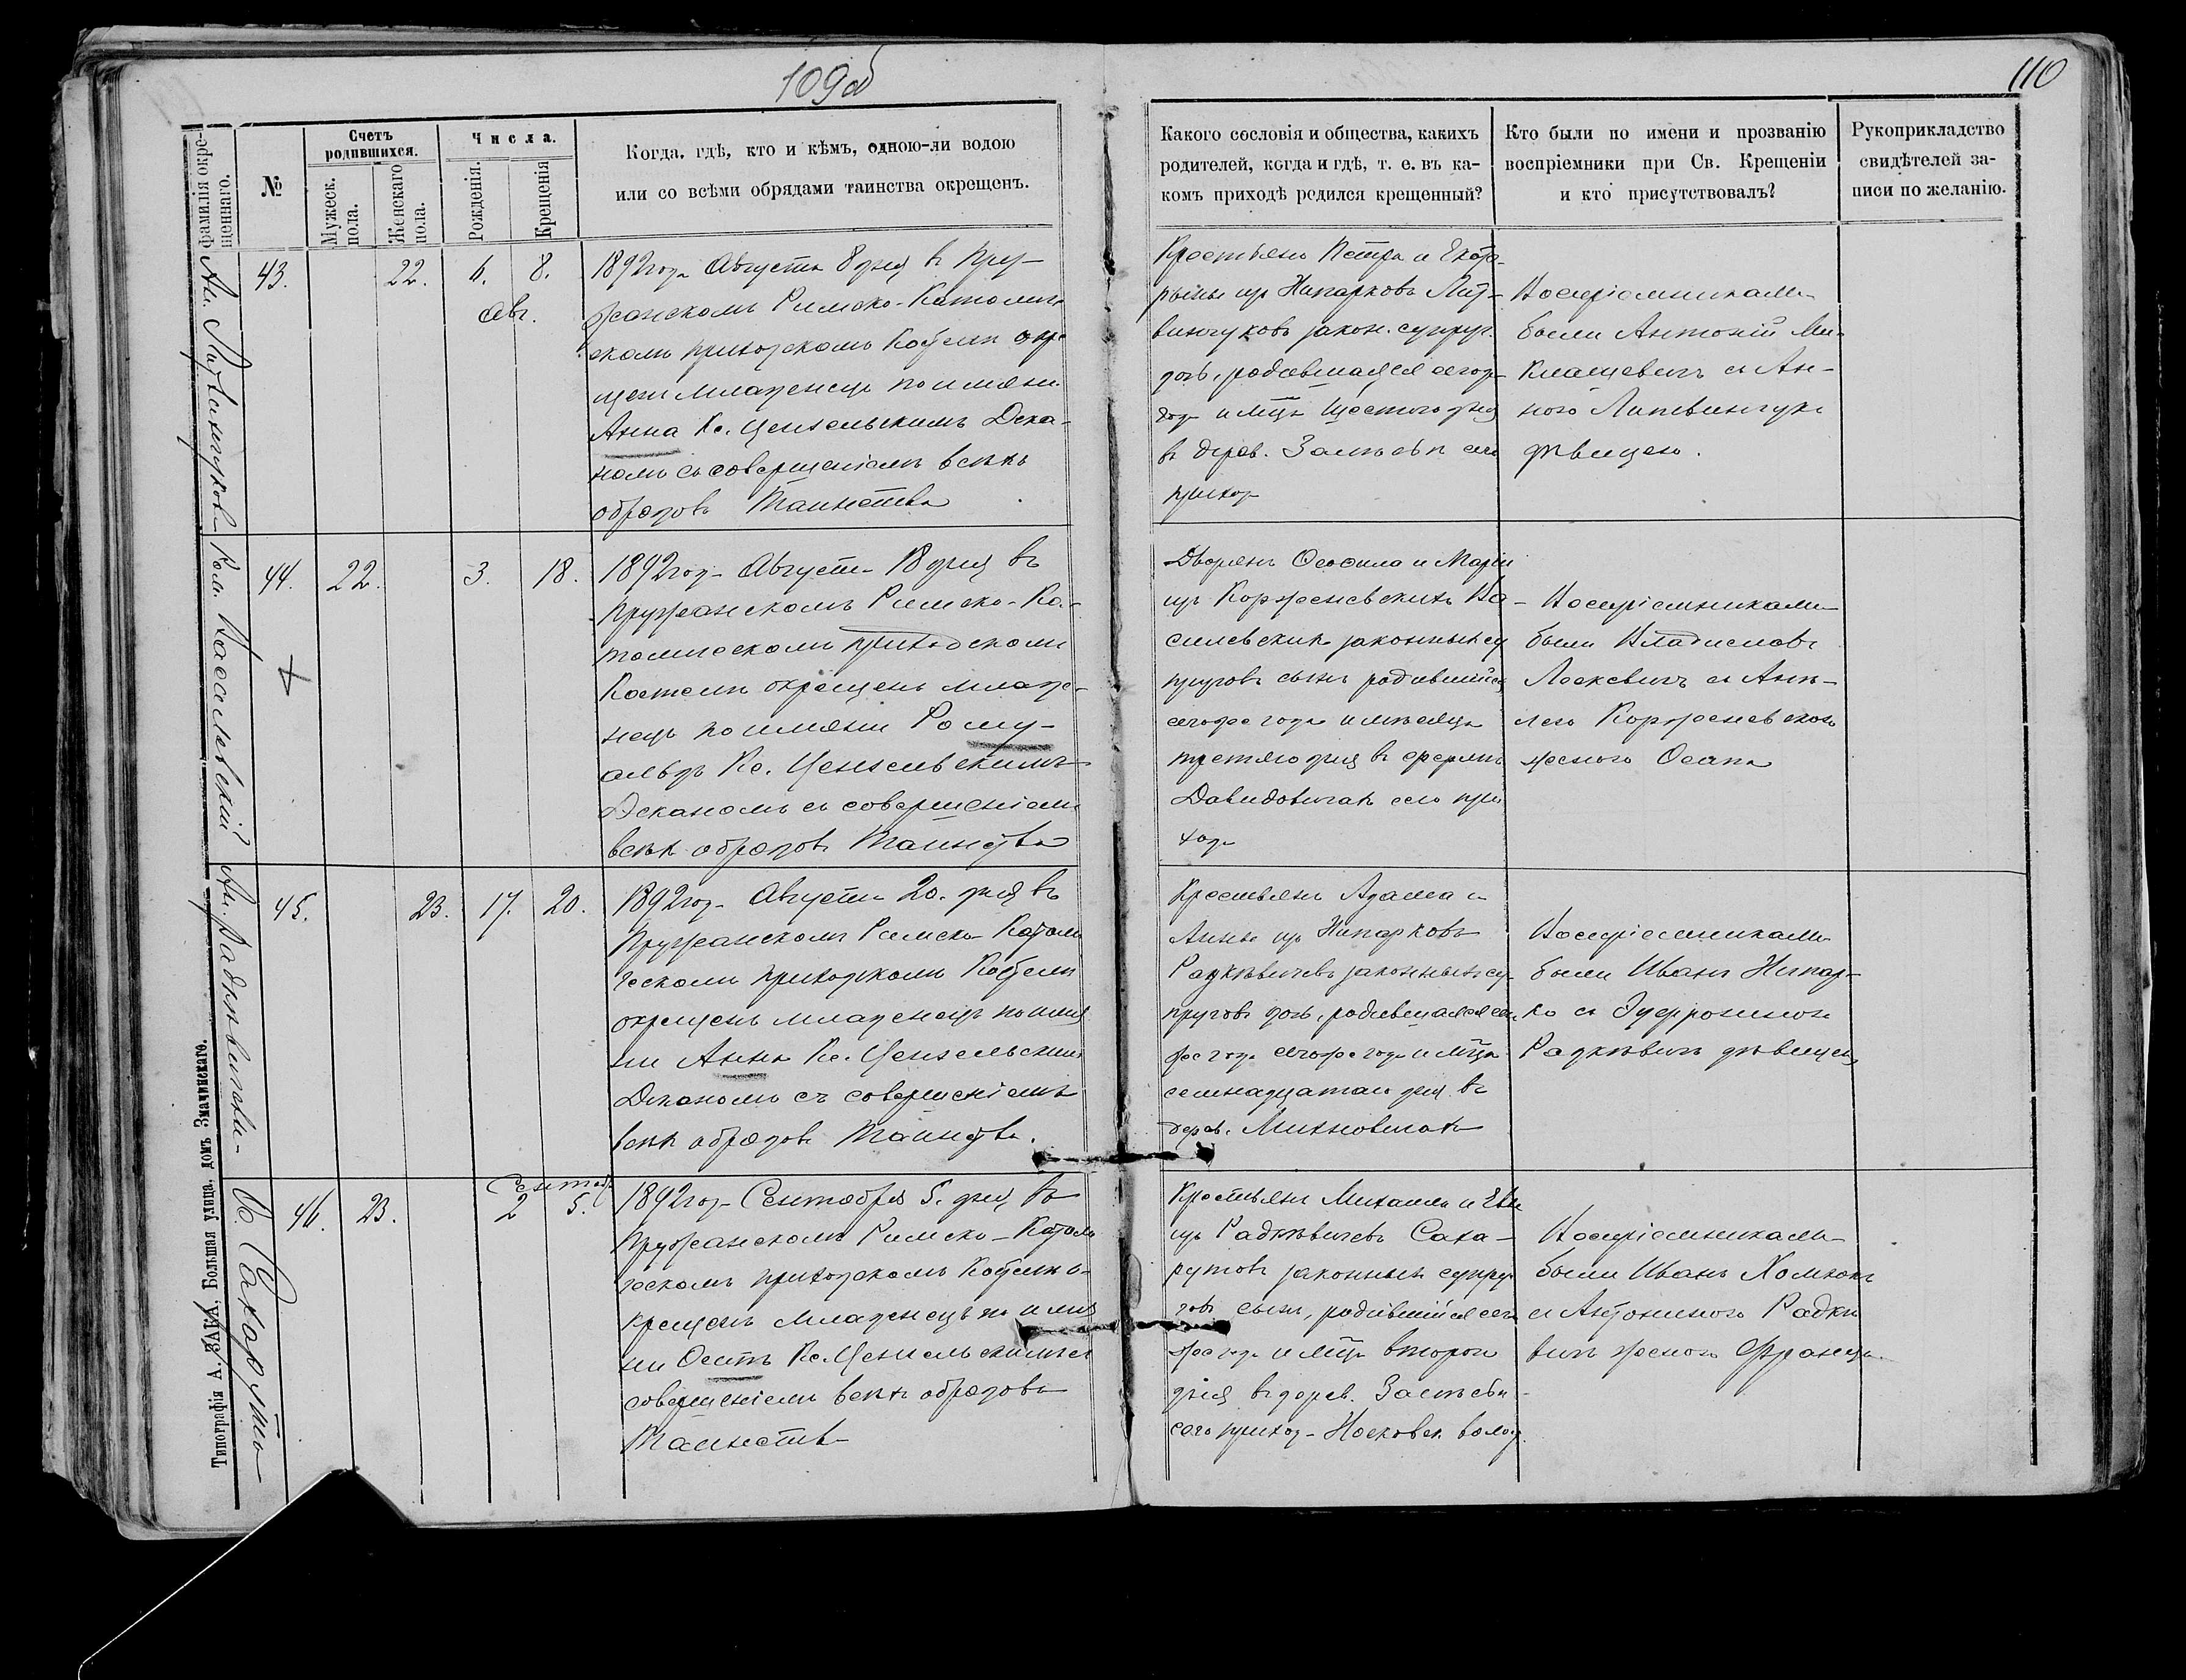 109об
110
фамилія окре-
щеннаго.
№
Счетъ
родившихся.
Мужеск.
пола.
Женскаго
пола.
Числа.
Рожденія.
Крещенія
Когда, гдѣ, кто и кѣмъ, одною-ли водою
или со всѣми обрядами таинства окрещенъ.
Какого сословія и общества, какихъ
родителей, когда и гдѣ, т. е. въ ка-
комъ приходѣ родился крещенный?
Кто были по имени и прозванію
воспріемники при Св. Крещеніи
и кто присутствовалъ?
Рукоприкладство
свидѣтелей за-
писи по желанію.
Ан. Литвинчуковна
43.
22.
6.
8.
Авг.
1892 года Августа 8 дня въ Пру-
жанскомъ Римско-Католиче
скомъ приходскомъ Костелѣ окре
щенъ младенецъ по имени
Анна Кс. Цензельскимъ Дека-
номъ съ совершеніемъ всѣхъ
обрядовъ Таинства
Крестьянъ Петра и Екате-
рины изъ Нипарковъ Лит-
винчуковъ закон. супруг.
дочь, родившаяся сего
года и мца Шестого дня
въ дерев. Засимъ сего
приход
Воспріемниками
были Антоній Ми-
клашевичъ съ Ан-
ною Литвинчукъ
дѣвицею.
Ром. Василевскій
44.
22.
3.
18.
1892 года Августа 18 дня въ
Пружанскомъ Римско-Ка-
толическомъ приходскомъ
Костелѣ окрещенъ младе-
нецъ по имени Рому-
альдъ Кс. Цензельскимъ
Деканомъ съ совершеніемъ
всѣхъ обрядовъ Таинства
Дворянъ Осипа и Маріи
изъ Корженевскихъ Ва-
силевскихъ законныхъ су
пруговъ сынъ, родившійся
сегоже года и мѣсяца
третяго дня въ фермѣ
Давидовичахъ сего при
хода
Воспріемниками
были Владиславъ
Лоскевичъ съ Анѣ-
лею Корженевскою
женою Осипа
Ан. Радкѣвичовна
45.
23.
17.
20.
1892 года Августа 20. дня въ
Пружанскомъ Римско Католи
ческомъ приходскомъ Костелѣ
окрещенъ младенецъ по име
ни Анна Кс. Цензельскимъ
Деканомъ съ совершеніемъ
всѣхъ обрядовъ Таинства.
Крестьянъ Адама и
Анны изъ Нипарковъ
Радкѣвичевъ законныхъ су-
пруговъ дочь, родившаяся сего
же года сегоже года и мца
семнадцатаго дня въ
дерев. Михновичахъ
Воспріемниками
были Иванъ Нипар-
ко съ Эуфрозиною
Радкѣвичъ дѣвицею
Ос. Сахарута
46.
23.
Сентяб.
2
5.
1892 года Сентября 5. дня въ
Пружанскомъ Римско-Католи
ческомъ приходскомъ Костелѣ о-
крещенъ младенецъ по име
ни Осипъ Кс. Цензельскимъ съ
совершеніемъ всѣхъ обрядовъ
Таинства
Крестьянъ Михаила и Евы
изъ Радкѣвичевъ Саха-
рутовъ законныхъ супру
говъ сынъ, родившійся сего
же года и мца второго
дня въ дерев.
сего приход. Носковск. волос.
Воспріемниками
были Иванъ Хомюкъ
съ Антониною Радкѣ
вичъ женою Францa
Типографія А. ЗАКА, Большая улица, домъ Змачинскаго.